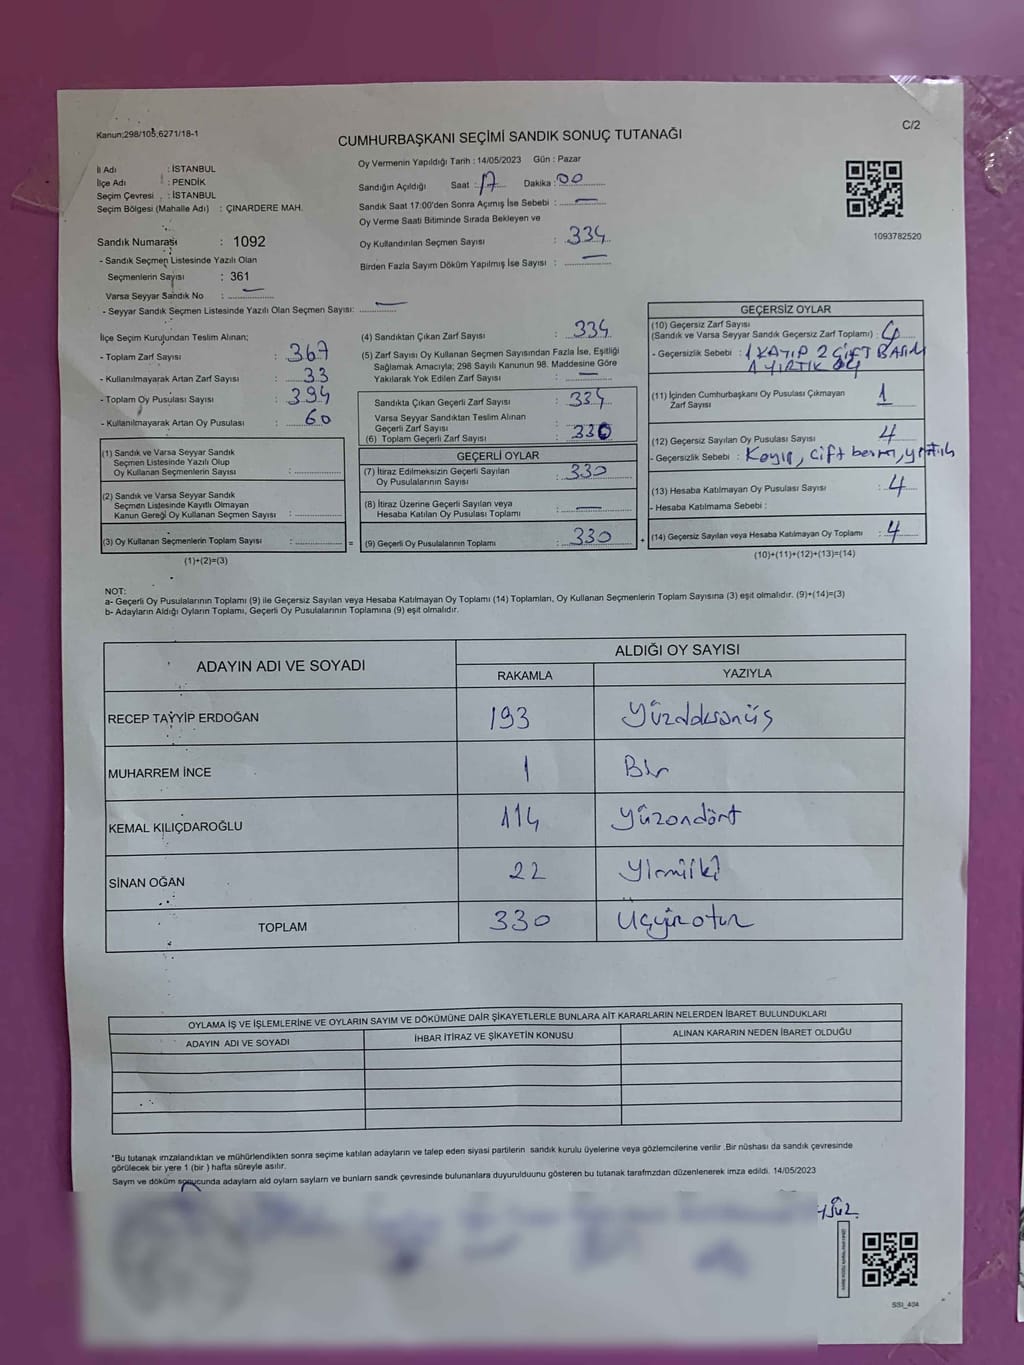 Kanun;298/105;6271/18-1
C/2
CUMHURBAŞKANI SEÇİMİ SANDIK SONUÇ TUTANAĞI
İl Adı : İSTANBUL
İlçe Adı : PENDİK
Seçim Çevresi : İSTANBUL
Seçim Bölgesi (Mahalle Adı) : ÇINARDERE MAH.
Oy Vermenin Yapıldığı Tarih : 14/05/2023 Gün : Pazar
Sandığın Açıldığı Saat : 17 Dakika : 00
Sandık Saat 17:00'den Sonra Açımış İse Sebebi : —
Oy Verme Saati Bitiminde Sırada Bekleyen ve
Oy Kullandırılan Seçmen Sayısı : 334
Birden Fazla Sayım Döküm Yapılmış İse Sayısı : —
1093782520
Sandık Numarası : 1092
- Sandık Seçmen Listesinde Yazılı Olan
Seçmenlerin Sayısı : 361
Varsa Seyyar Sandık No : —
- Seyyar Sandık Seçmen Listesinde Yazılı Olan Seçmen Sayısı: —
İlçe Seçim Kurulundan Teslim Alınan;
- Toplam Zarf Sayısı : 367
- Kullanılmayarak Artan Zarf Sayısı : 33
- Toplam Oy Pusulası Sayısı : 394
- Kullanılmayarak Artan Oy Pusulası : 60
(1) Sandık ve Varsa Seyyar Sandık
Seçmen Listesinde Yazılı Olup
Oy Kullanan Seçmenlerin Sayısı :
(2) Sandık ve Varsa Seyyar Sandık
Seçmen Listesinde Kayıtlı Olmayan
Kanun Gereği Oy Kullanan Seçmen Sayısı :
(3) Oy Kullanan Seçmenlerin Toplam Sayısı : =
(1)+(2)=(3)
(4) Sandıktan Çıkan Zarf Sayısı : 334
(5) Zarf Sayısı Oy Kullanan Seçmen Sayısından Fazla İse, Eşitliği
Sağlamak Amacıyla; 298 Sayılı Kanunun 98. Maddesine Göre
Yakılarak Yok Edilen Zarf Sayısı : —
Sandıkta Çıkan Geçerli Zarf Sayısı : 334
Varsa Seyyar Sandıktan Teslim Alınan
Geçerli Zarf Sayısı :
(6) Toplam Geçerli Zarf Sayısı : 330
GEÇERLİ OYLAR
(7) İtiraz Edilmeksizin Geçerli Sayılan
Oy Pusulalarının Sayısı : 330
(8) İtiraz Üzerine Geçerli Sayılan veya
Hesaba Katılan Oy Pusulası Toplamı : —
(9) Geçerli Oy Pusulalarının Toplamı : 330 +
GEÇERSİZ OYLAR
(10) Geçersiz Zarf Sayısı
(Sandık ve Varsa Seyyar Sandık Geçersiz Zarf Toplamı) : 4
- Geçersizlik Sebebi : 1 KAYIP 2 ÇİFT BASIM
1 YIRTIK
(11) İçinden Cumhurbaşkanı Oy Pusulası Çıkmayan
Zarf Sayısı : 1
(12) Geçersiz Sayılan Oy Pusulası Sayısı : 4
- Geçersizlik Sebebi : Kayıp, Çift basım, yırtık
(13) Hesaba Katılmayan Oy Pusulası Sayısı : 4
- Hesaba Katılmama Sebebi :
(14) Geçersiz Sayılan veya Hesaba Katılmayan Oy Toplamı : 4
(10)+(11)+(12)+(13)=(14)
NOT:
a- Geçerli Oy Pusulalarının Toplamı (9) ile Geçersiz Sayılan veya Hesaba Katılmayan Oy Toplamı (14) Toplamları, Oy Kullanan Seçmenlerin Toplam Sayısına (3) eşit olmalıdır. (9)+(14)=(3)
b- Adayların Aldığı Oyların Toplamı, Geçerli Oy Pusulalarının Toplamına (9) eşit olmalıdır.
ADAYIN ADI VE SOYADI
ALDIĞI OY SAYISI
RAKAMLA YAZIYLA
RECEP TAYYİP ERDOĞAN 193 Yüzdoksanüş
MUHARREM İNCE 1 Bir
KEMAL KILIÇDAROĞLU 114 Yüzondört
SİNAN OĞAN 22 Yirmiiki
TOPLAM 330 Üçyüzotuz
OYLAMA İŞ VE İŞLEMLERİNE VE OYLARIN SAYIM VE DÖKÜMÜNE DAİR ŞİKAYETLERLE BUNLARA AİT KARARLARIN NELERDEN İBARET BULUNDUKLARI
ADAYIN ADI VE SOYADI İHBAR İTİRAZ VE ŞİKAYETİN KONUSU ALINAN KARARIN NEDEN İBARET OLDUĞU
*Bu tutanak ımzalandıktan ve mühürlendikten sonra seçime katılan adayların ve talep eden siyasi partilerin sandık kurulu üyelerine veya gözlemcilerine verilir .Bir nüshası da sandık çevresinde
görülecek bir yere 1 (bir ) hafta süreyle asılır.
Sayım ve döküm sonucunda adayların ald oyların sayları ve bunların sandk çevresinde bulunanlara duyurulduunu gösteren bu tutanak tarafmzdan düzenlenerek imza edildi. 14/05/2023
SSI_404